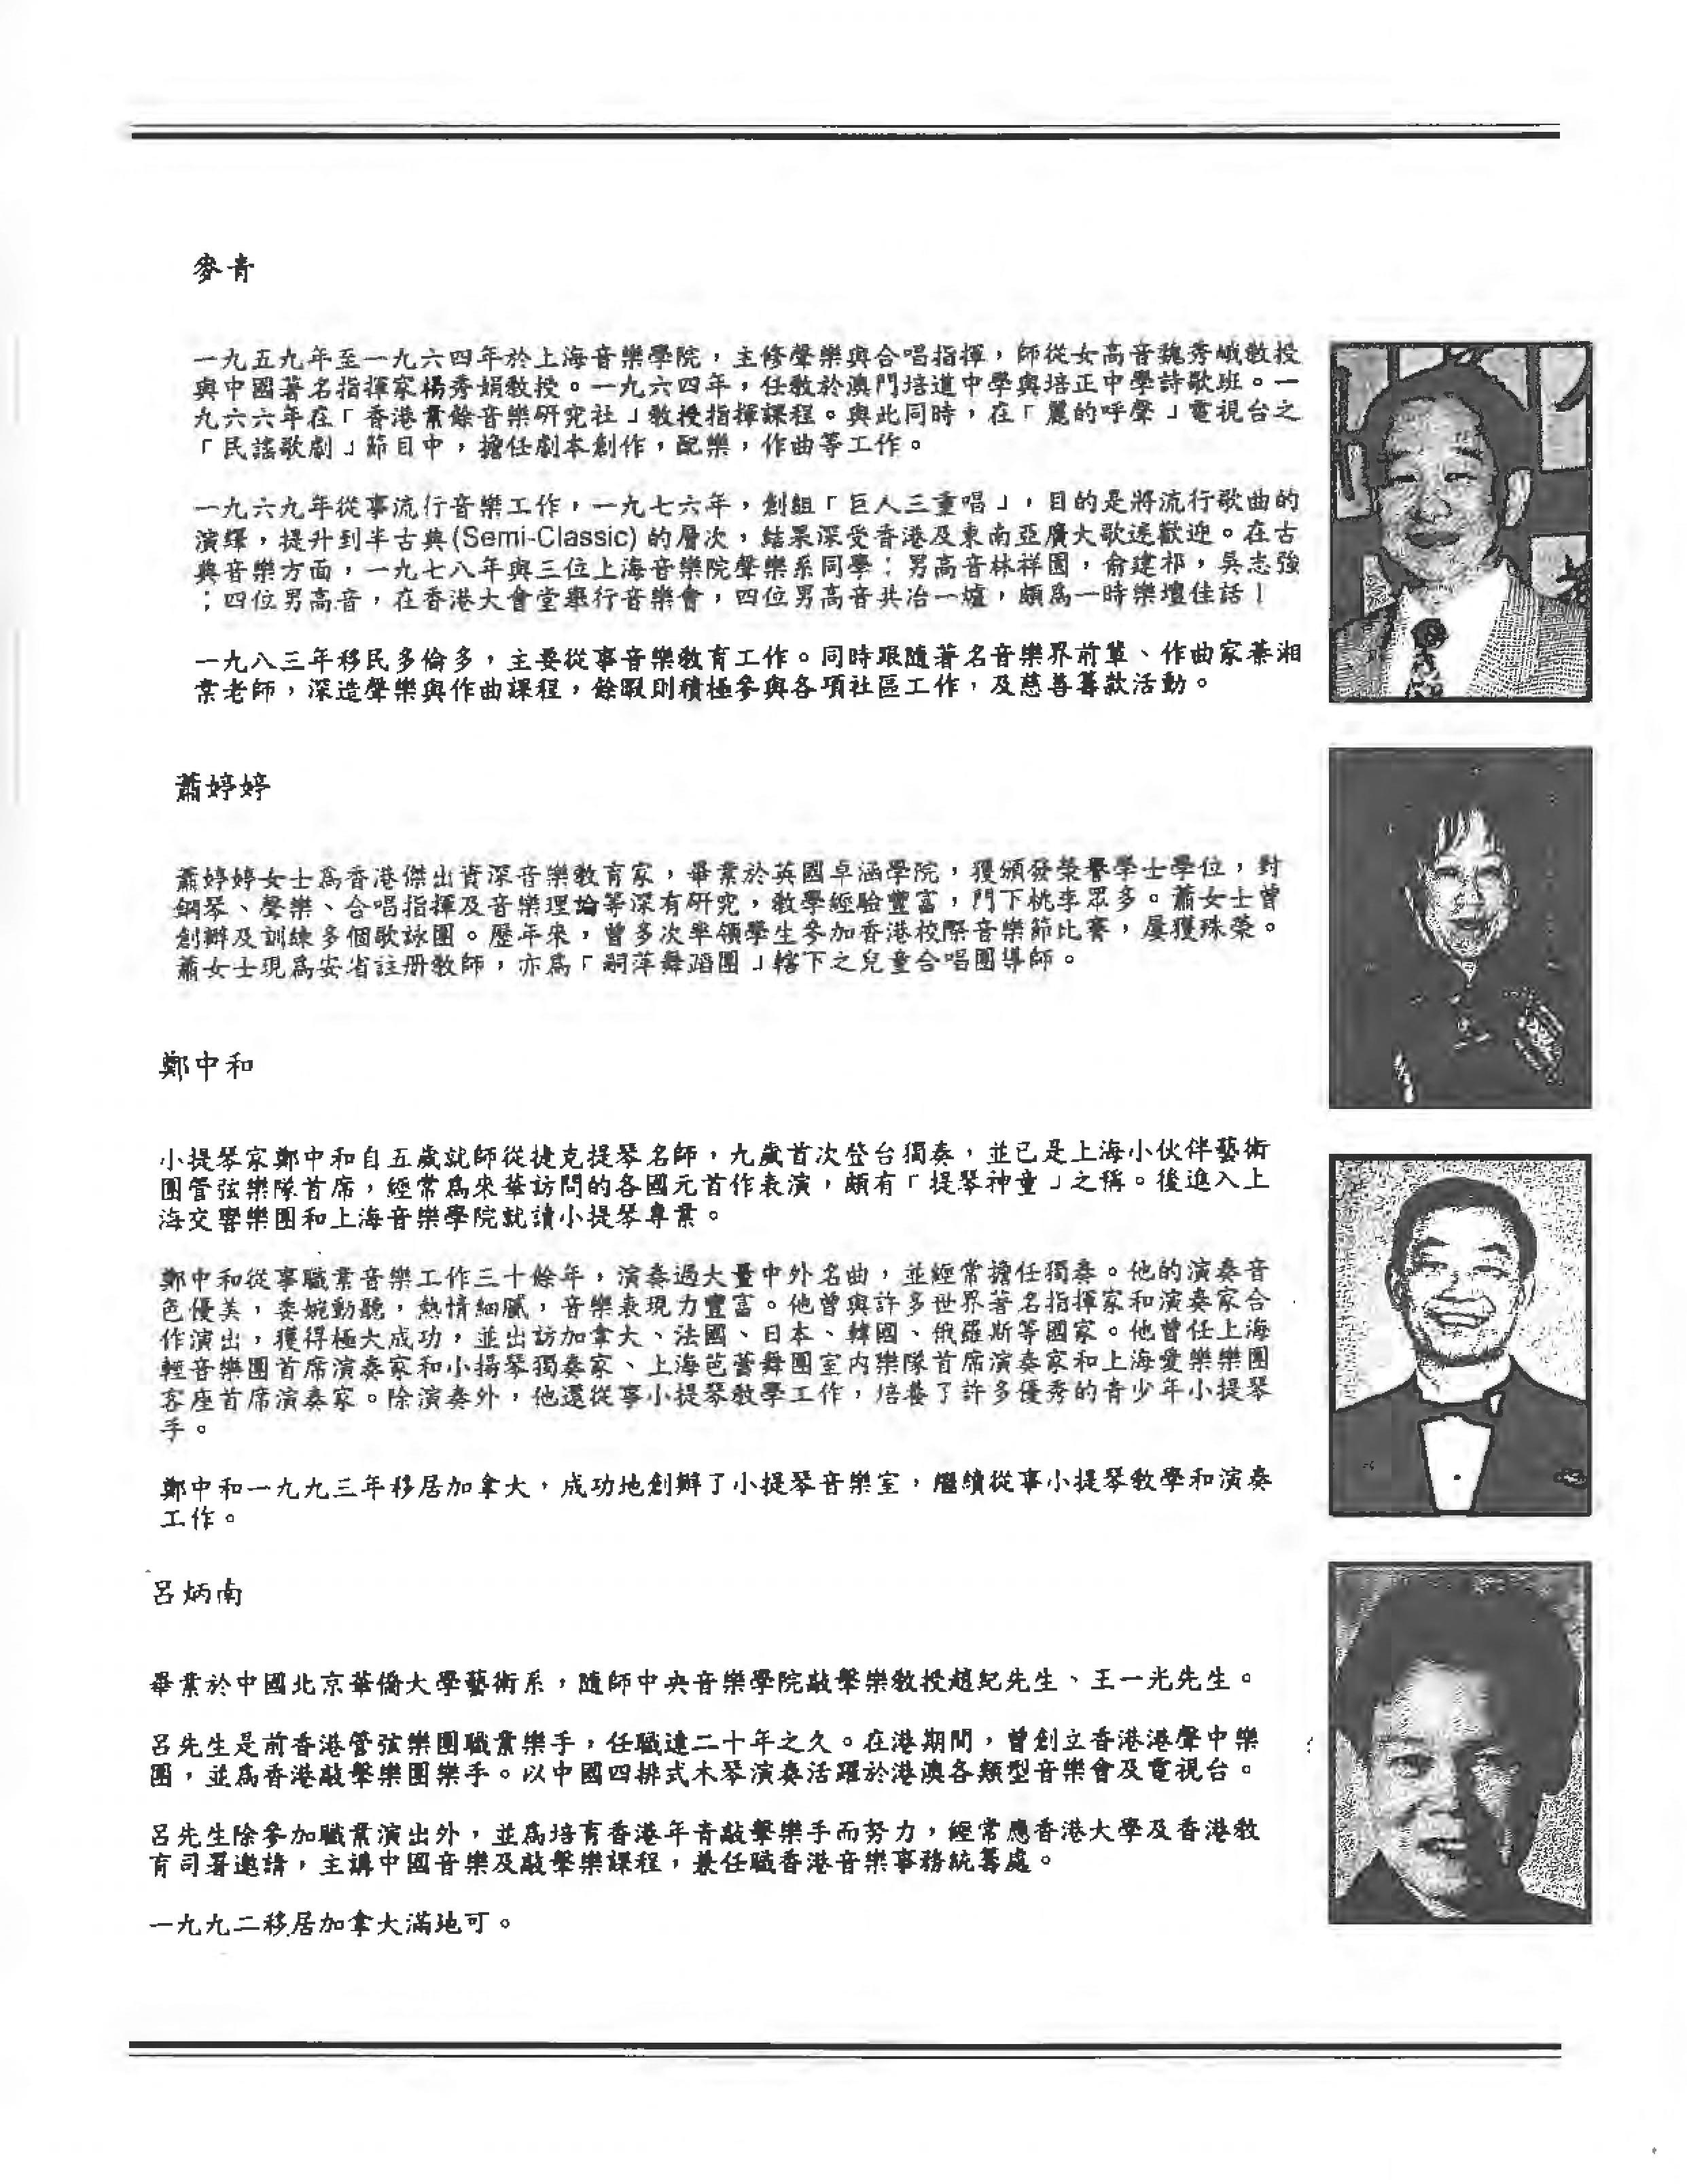 麥青
一九五九年至一九六四年於上海音樂學院，主修聲樂與合唱指揮，師從女高音魏秀峨教授
與中國著名指揮家楊秀娟教授。一九六四年，任教於澳門培道中學與培正中學詩歌班。一
九六六年在「香港業餘音樂研究社」教授指揮課程。與此同時，在「麗的呼聲」電視台之
「民謠歌劇」節目中，擔任劇本創作，配樂，作曲等工作。
一九六九年從事流行音樂工作，一九七六年，創組「巨人三重唱」，目的是將流行歌曲的
演繹，提升到半古典(Semi-Classic) 的層次，結果深受香港及東南亞廣大歌迷歡迎。在古
典音樂方面，一九七八年與三位上海音樂院聲樂系同學：男高音林祥園，俞建祁，吳志強
；四位男高音，在香港大會堂舉行音樂會，四位男高音共冶一爐，頗爲一時樂壇佳話！
一九八三年移民多倫多，主要從事音樂教育工作。同時跟隨著名音樂界前輩、作曲家葉湘
棠老師，深造聲樂與作曲課程，餘暇則積極參與各項社區工作，及慈善籌款活動。
蕭婷婷
蕭婷婷女士爲香港傑出資深音樂教育家，畢業於英國卓涵學院，獲頒發榮譽學士學位，對
鋼琴、聲樂、合唱指揮及音樂理論等深有研究，教學經驗豐富，門下桃李眾多。蕭女士曾
創辦及訓練多個歌詠團。歷年來，曾多次率領學生參加香港校際音樂節比賽，屢獲殊榮。
蕭女士現爲安省註册教師，亦爲「嗣萍舞蹈團」轄下之兒童合唱團導師。
鄭中和
小提琴家鄭中和自五歲就師從捷克提琴名師，九歲首次登台獨奏，並已是上海小伙伴藝術
團管弦樂隊首席，經常爲來華訪問的各國元首作表演，頗有「提琴神童」之稱。後進入上
海交響樂團和上海音樂學院就讀小提琴專業。
鄭中和從事職業音樂工作三十餘年，演奏過大量中外名曲，並經常擔任獨奏。他的演奏音
色優美，委婉動聽，熱情細膩，音樂表現力豐富。他曾與許多世界著名指揮家和演奏家合
作演出，獲得極大成功，並出訪加拿大、法國、日本、韓國、俄羅斯等國家。他曾任上海
輕音樂團首席演奏家和小揚琴獨奏家、上海芭蕾舞團室內樂隊首席演奏家和上海愛樂樂團
客座首席演奏家。除演奏外，他還從事小提琴教學工作，培養了許多優秀的青少年小提琴
手。
鄭中和一九九三年移居加拿大，成功地創辦了小提琴音樂室，繼續從事小提琴教學和演奏
工作。
呂炳南
畢業於中國北京華僑大學藝術系，隨師中央音樂學院敲擊樂教授趙紀先生、王一光先生。
呂先生是前香港管弦樂團職業樂手，任職達二十年之久。在港期間，曾創立香港港聲中樂
團，並爲香港敲擊樂團樂手。以中國四排式木琴演奏活躍於港澳各類型音樂會及電視台。
呂先生除參加職業演出外，並爲培育香港年青敲擊樂手而努力，經常應香港大學及香港教
育司署邀請，主講中國音樂及敲擊樂課程，兼任職香港音樂事務統籌處。
一九九二移居加拿大滿地可。